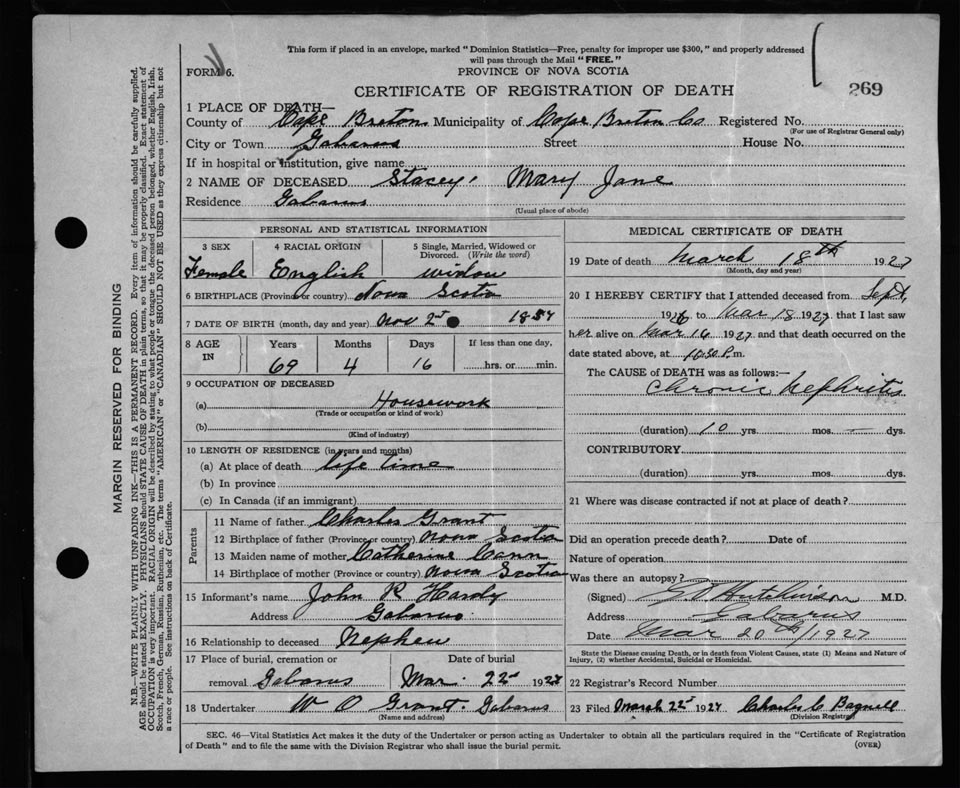 This form if placed in an envelope, marked "Dominion Statistics—Free, penalty for improper use $300," and properly addressed
will pass through the Mail "FREE."
FORM 6.
PROVINCE OF NOVA SCOTIA
CERTIFICATE OF REGISTRATION OF DEATH
269
1 PLACE OF DEATH—
County of Cape Breton Municipality of Cape Breton Co Registered No.
(For use of Registrar General only)
City or Town Gabarus Street House No.
If in hospital or institution, give name
2 NAME OF DECEASED Stacey, Mary Jane
Residence Gabarus
(Usual place of abode)
PERSONAL AND STATISTICAL INFORMATION
3 SEX 4 RACIAL ORIGIN 5 Single, Married, Widowed or
Divorced. (Write the word)
Female English widow
6 BIRTHPLACE (Province or country) Nova Scotia
7 DATE OF BIRTH (month, day and year) Nov 2 1857
8 AGE IN Years Months Days If less than one day,
69 4 16 hrs. or min.
9 OCCUPATION OF DECEASED
(a) Housework
(Trade or occupation or kind of work)
(b)
(Kind of industry)
10 LENGTH OF RESIDENCE (in years and months)
(a) At place of death life time
(b) In province
(c) In Canada (if an immigrant)
Parents
11 Name of father Charles Grant
12 Birthplace of father (Province or country) Nova Scotia
13 Maiden name of mother Catherine Cann
14 Birthplace of mother (Province or country) Nova Scotia
15 Informant's name John R Hardy
Address Gabarus
16 Relationship to deceased Nephew
17 Place of burial, cremation or Date of burial
removal Gabarus Mar. 22 1927
18 Undertaker W O Grant. Gabarus
(Name and address)
MEDICAL CERTIFICATE OF DEATH
19 Date of death March 18th 1927
(Month, day and year)
20 I HEREBY CERTIFY that I attended deceased from Sept,
1926 to Mar 18 1927 that I last saw
her alive on Mar 16 1927 and that death occurred on the
date stated above, at 10.30 P.m.
The CAUSE of DEATH was as follows:—
Chronic Nephritis
(duration) 10 yrs. mos. — dys.
CONTRIBUTORY
(duration) yrs. mos. dys.
21 Where was disease contracted if not at place of death?
Did an operation precede death? Date of
Nature of operation
Was there an autopsy?
(Signed) Hutchinson M.D.
Address Gabarus
Date Mar 20th/1927
State the Disease causing Death, or in death from Violent Causes, state (1) Means and Nature of
Injury, (2) whether Accidental, Suicidal or Homicidal.
22 Registrar's Record Number
23 Filed March 22 1927 Charles C Bagnell
(Division Registrar)
SEC. 46—Vital Statistics Act makes it the duty of the Undertaker or person acting as Undertaker to obtain all the particulars required in the "Certificate of Registration
of Death" and to file the same with the Division Registrar who shall issue the burial permit.
(OVER)
MARGIN RESERVED FOR BINDING
N.B.—WRITE PLAINLY WITH UNFADING INK—THIS IS A PERMANENT RECORD. Every item of information should be carefully supplied.
AGE should be stated EXACTLY. PHYSICIANS should STATE CAUSE OF DEATH in plain terms, so that it may be properly classified. Exact statement of
OCCUPATION is very important. RACIAL ORIGIN will be described by stating to what people or tongue the deceased person belonged, whether English, Irish,
Scotch, French, German, Russian, Ruthenian, etc. The terms "AMERICAN" or "CANADIAN" SHOULD NOT BE USED as they express citizenship but not
a race or people. See instructions on back of Certificate.